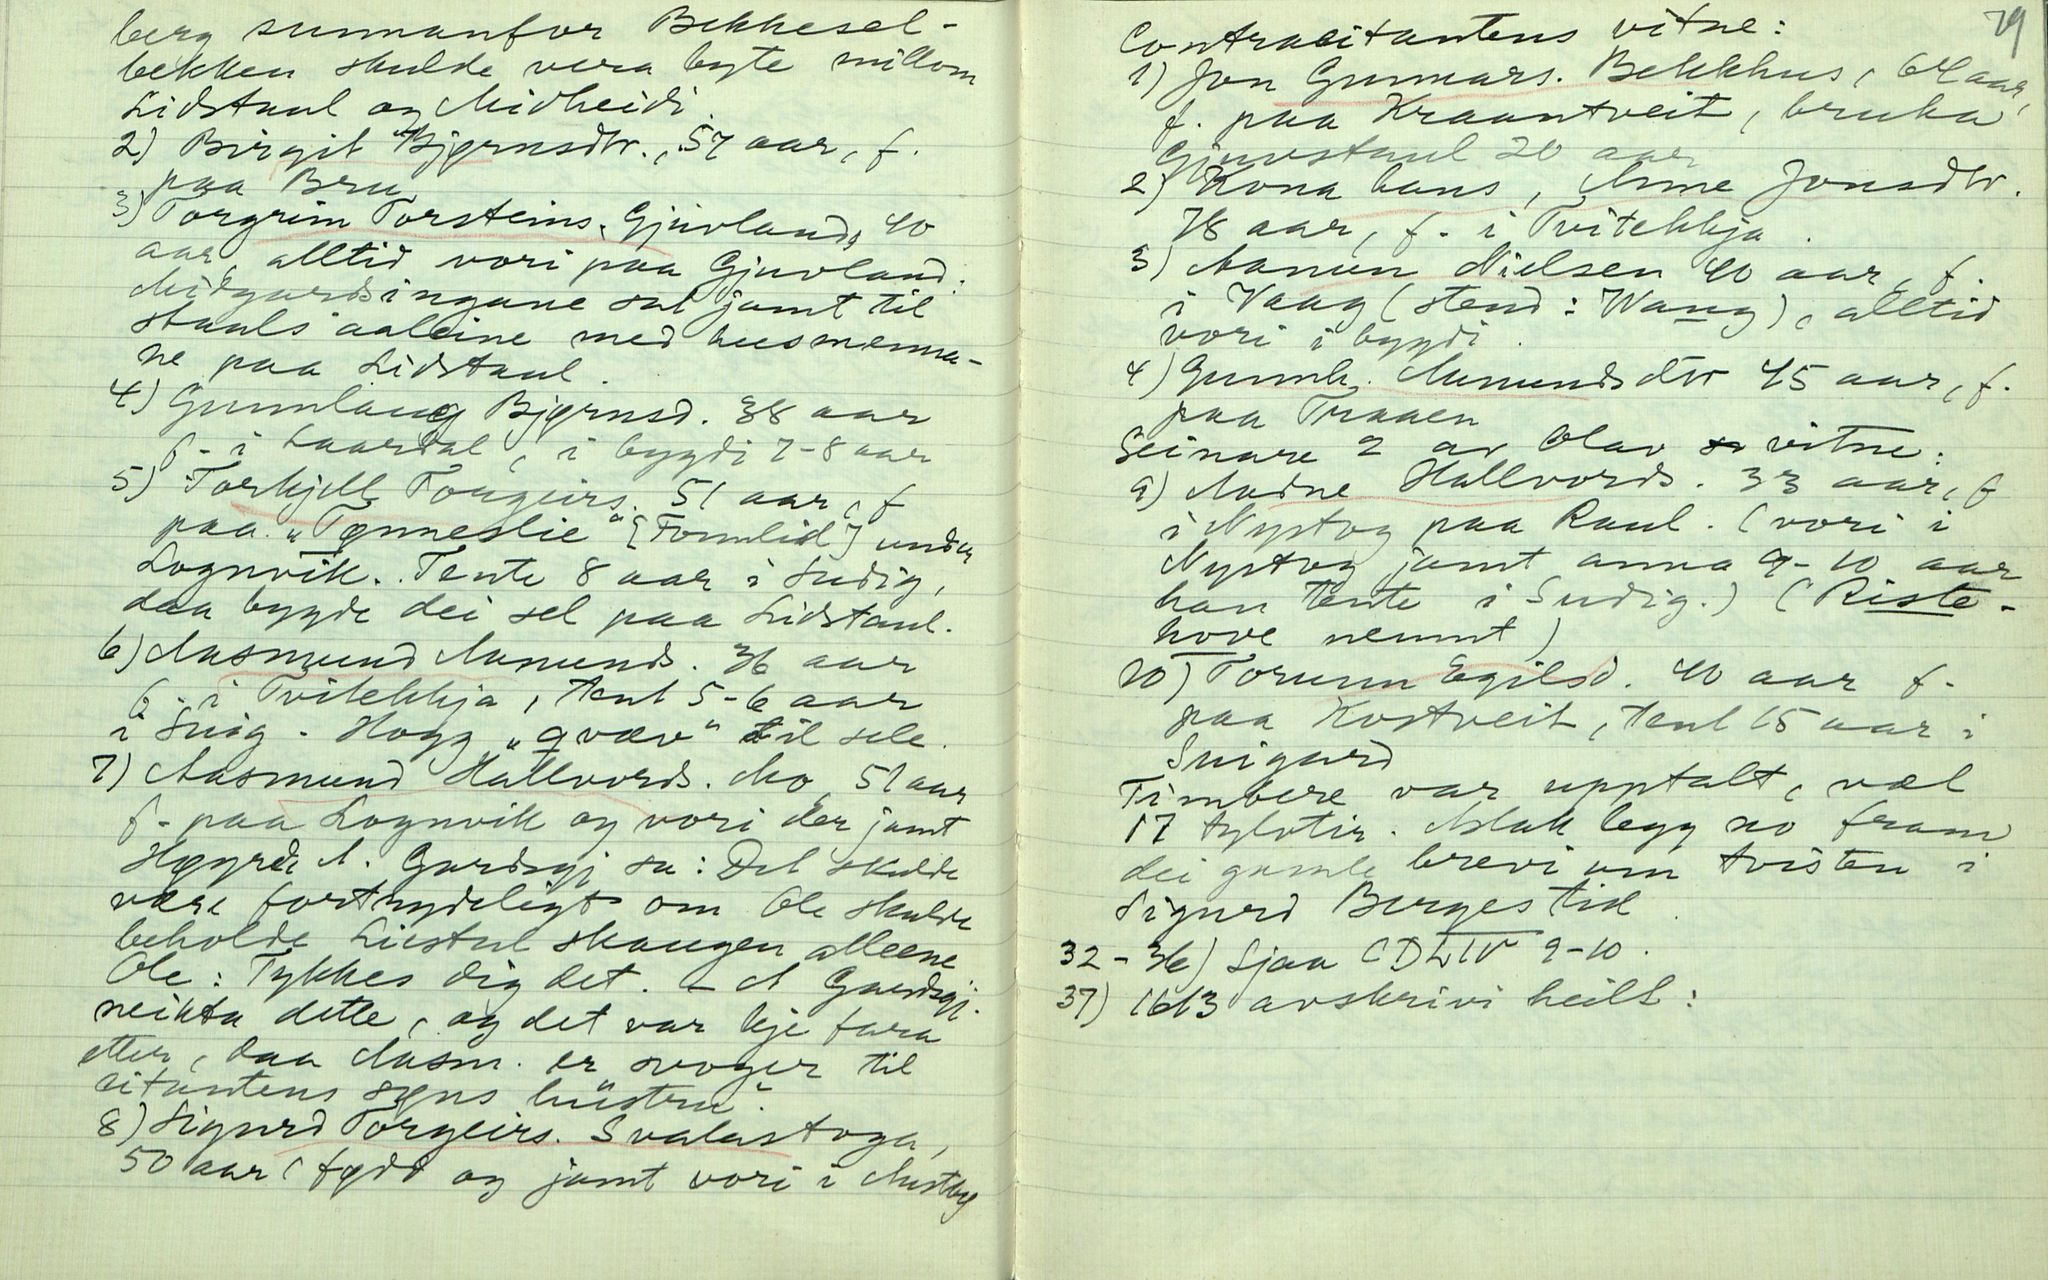 berg sunnanfor Bekkesel-
bekken skulde vera byte millom
Lidstaul og Midheidi.
2) Birgit Bjørnsdtr., 57 aar, f.
paa Bru
3) Torgrim Torsteins. Gjuvland, 40
aar, alltid vori paa Gjuvland:
Midgardsingane sat jamt til
stauls aaleine med husmenna-
ne paa Lidstaul.
4) Gunnlaug Bjørnsd. 38 aar
f. i Laardal, i bygdi 7-8 aar
5) Torkjell Tovgeirs. 51 aar, f
paa "Tønneslie" [Tomlid] under
Lognvik. Tente 8 aar i Sudig,
daa bygde dei sel paa Lidstaul.
6) Aasmund Aamunds. 36 aar
f. i Tvitekkja, tent 5-6 aar
i Suig. Hogg "qvæv" til sele.
7) Aasmund Hallvords. Mo, 51 aar
f. paa Lognvik og vori der jamt
Høyrde A. Gardsgj sa: Det skulde
være fortrydeligt om Ole skulde
beholde Liestul skaugen alleene
Ole: Tykkes dig det. – A Gardsgj.
neikta dette, og det var kje fara
etter, daa Aasm. er svoger til
citantens søns hustru".
8) Sigurd Torgeirs. Svalastoga,
50 aar, fødd og jamt vori i Austbø
79
Contracitantens vitne:
1) Jon Gunnars. Bekkhus, 64 aar,
f. paa Kraantveit, bruka
Gjuvstaul 20 aar
2) Kona hans, Anne Jonsdtr.
78 aar, f. i Tvitekkja.
3) Aamun Nielsen 40 aar, f.
i Vaag (stend: Wang), alltid
vori i bygdi.
4) Gunnh. Aamundsdtr 45 aar, f.
paa Traaen
Seinare 2 av Olav vitne:
9) Aadne Hallvords. 33 aar, f
i Nystog paa Raul. (vori i
Nystog jamt anna 9-10 aar
han tente i Sudig.) (Riste-
hove nemnt)
10) Torunn Egilsd. 40 aar f.
paa Kostveit, tent 15 aar i
Suigard
Timbere var upptalt, væl
17 tylvtir. Aslak legg no fram
dei gamle brevi um tvisten i
Sigurd Berges tid.
32-36) Sjaa CDLIV 9-10.
37) 1613 avskrivi heilt: